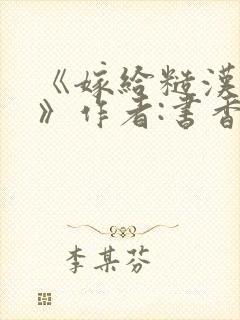 《嫁给糙漢
》作者:書香
李某芬